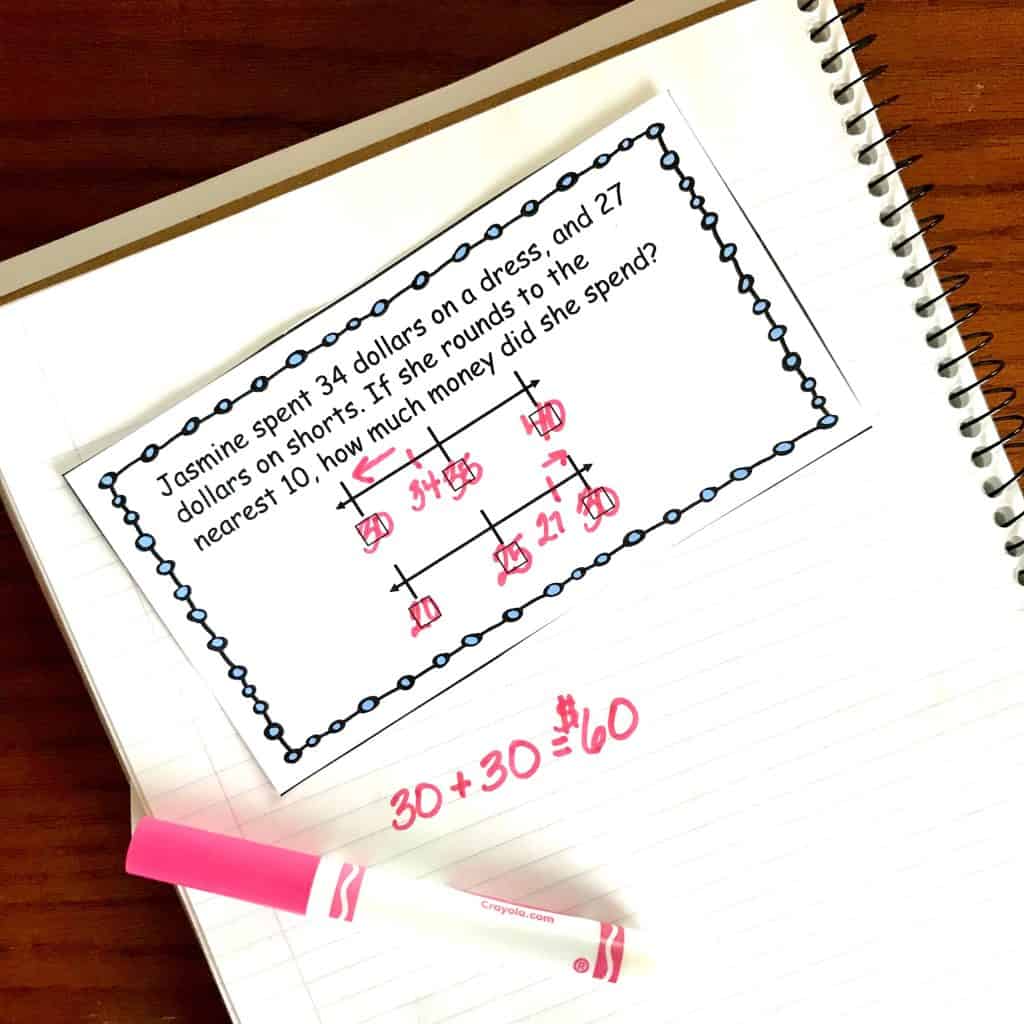 Jasmine spent 34 dollars on a dress, and 27
dollars on shorts. If she rounds to the
nearest 10, how much money did she spend?
30 34 35 40
20 25 27 30
30 + 30 = $60
Crayola.com
®